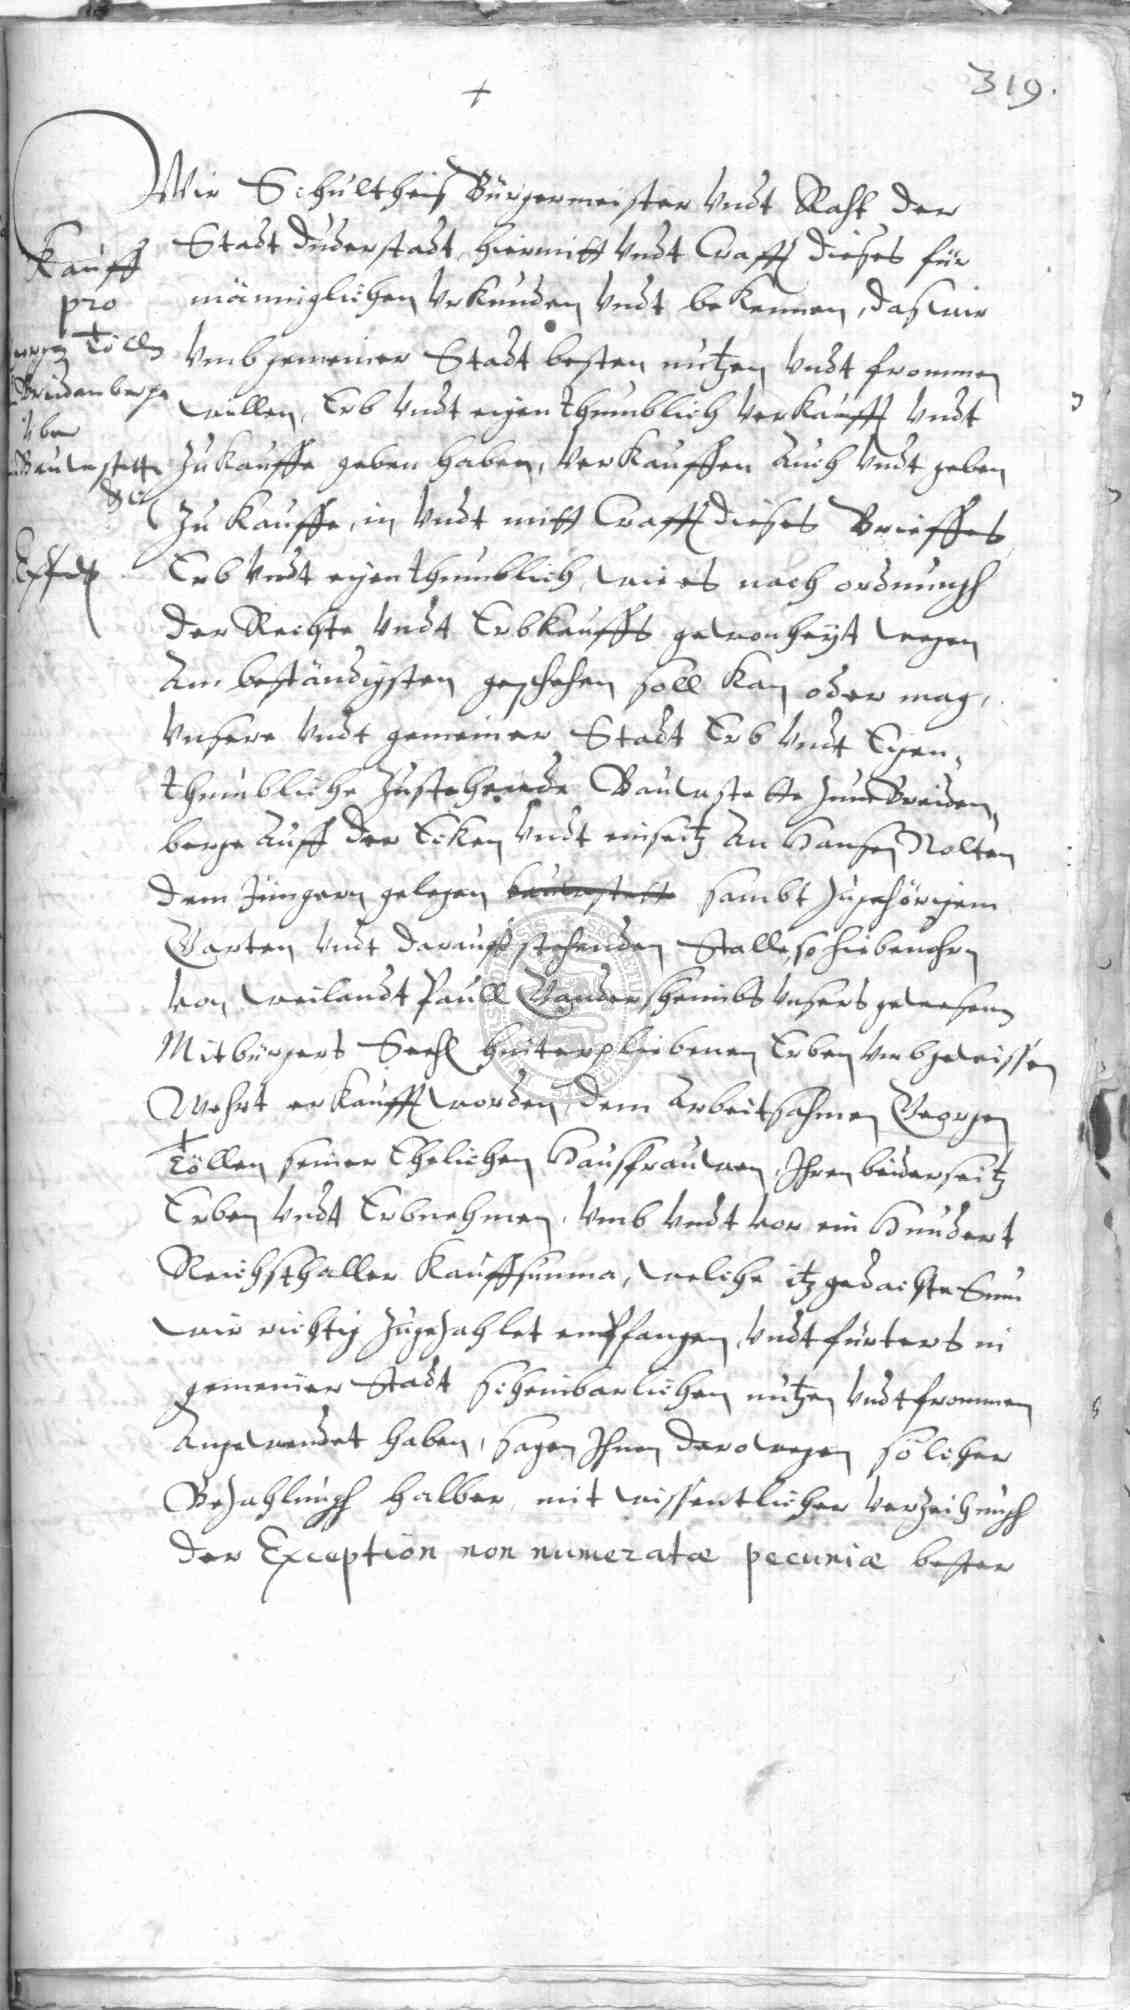 319.
Wir Schultheis Bürgermeister Vndt Raht der
Stadt Duderstadt, hiermitt Vndt Crafft dieses für
männiglichen Vrkunden Vndt bekennen, das wir
Vmb gemeiner Stadt besten nutzen Vndt frommen
willen, Erb Vndt eigenthumblich Verkaufft Vndt
Zukauffe geben haben, Verkauffen Auch Vndt geben
Zu kauffe, in Vndt mitt Crafft dieses Brieffes
Erb Vndt eigenthumblich, wie es nach ordnungh
der Rechte Vndt Erbkauffs gewonheyt wegen
Am beständigsten geschehen soll kan oder mag,
Vnsere Vndt gemeiner Stadt Erb Vndt Eigen„
thumbliche Zustehende Bauwstette zum Breiden„
berge Auff der Ecken Vndt einseitz An Hansen Nolten
dem Jüngern gelegen bauwstette sambt zugehörigem
Garten Vndt darauff stehenden Stalle, so hiebevohrn
von weilandt Paull Gandersheimbs Vnsers gewesenen
Mitbürgers Seehl hinterpliebenen Erben Vmb gewissen
Wehrt erkaufft worden, dem Arbeitsahmen Georgen
Töllen seiner Ehelichen Hausfrauwen, Ihren beiderseitz
Erben Vndt Erbnehmen, Vmb Vndt vor ein Hundert
Reichsthaller Kauffsumma, welche itzgedachte Sum
wir richtig Zugezahlet empfangen, Vndt fürters in
gemeiner Stadt scheinbarlichen nutzen Vndt frommen
Angewendet haben, sagen Ihnen derowegen solcher
Bezahlungh halber, mit wissentlicher Verzeihungh
der Exception non numeratæ pecuniæ bester
Kauff
pro
Georg Tölln
Breidenberge
Vber
Bauwstette